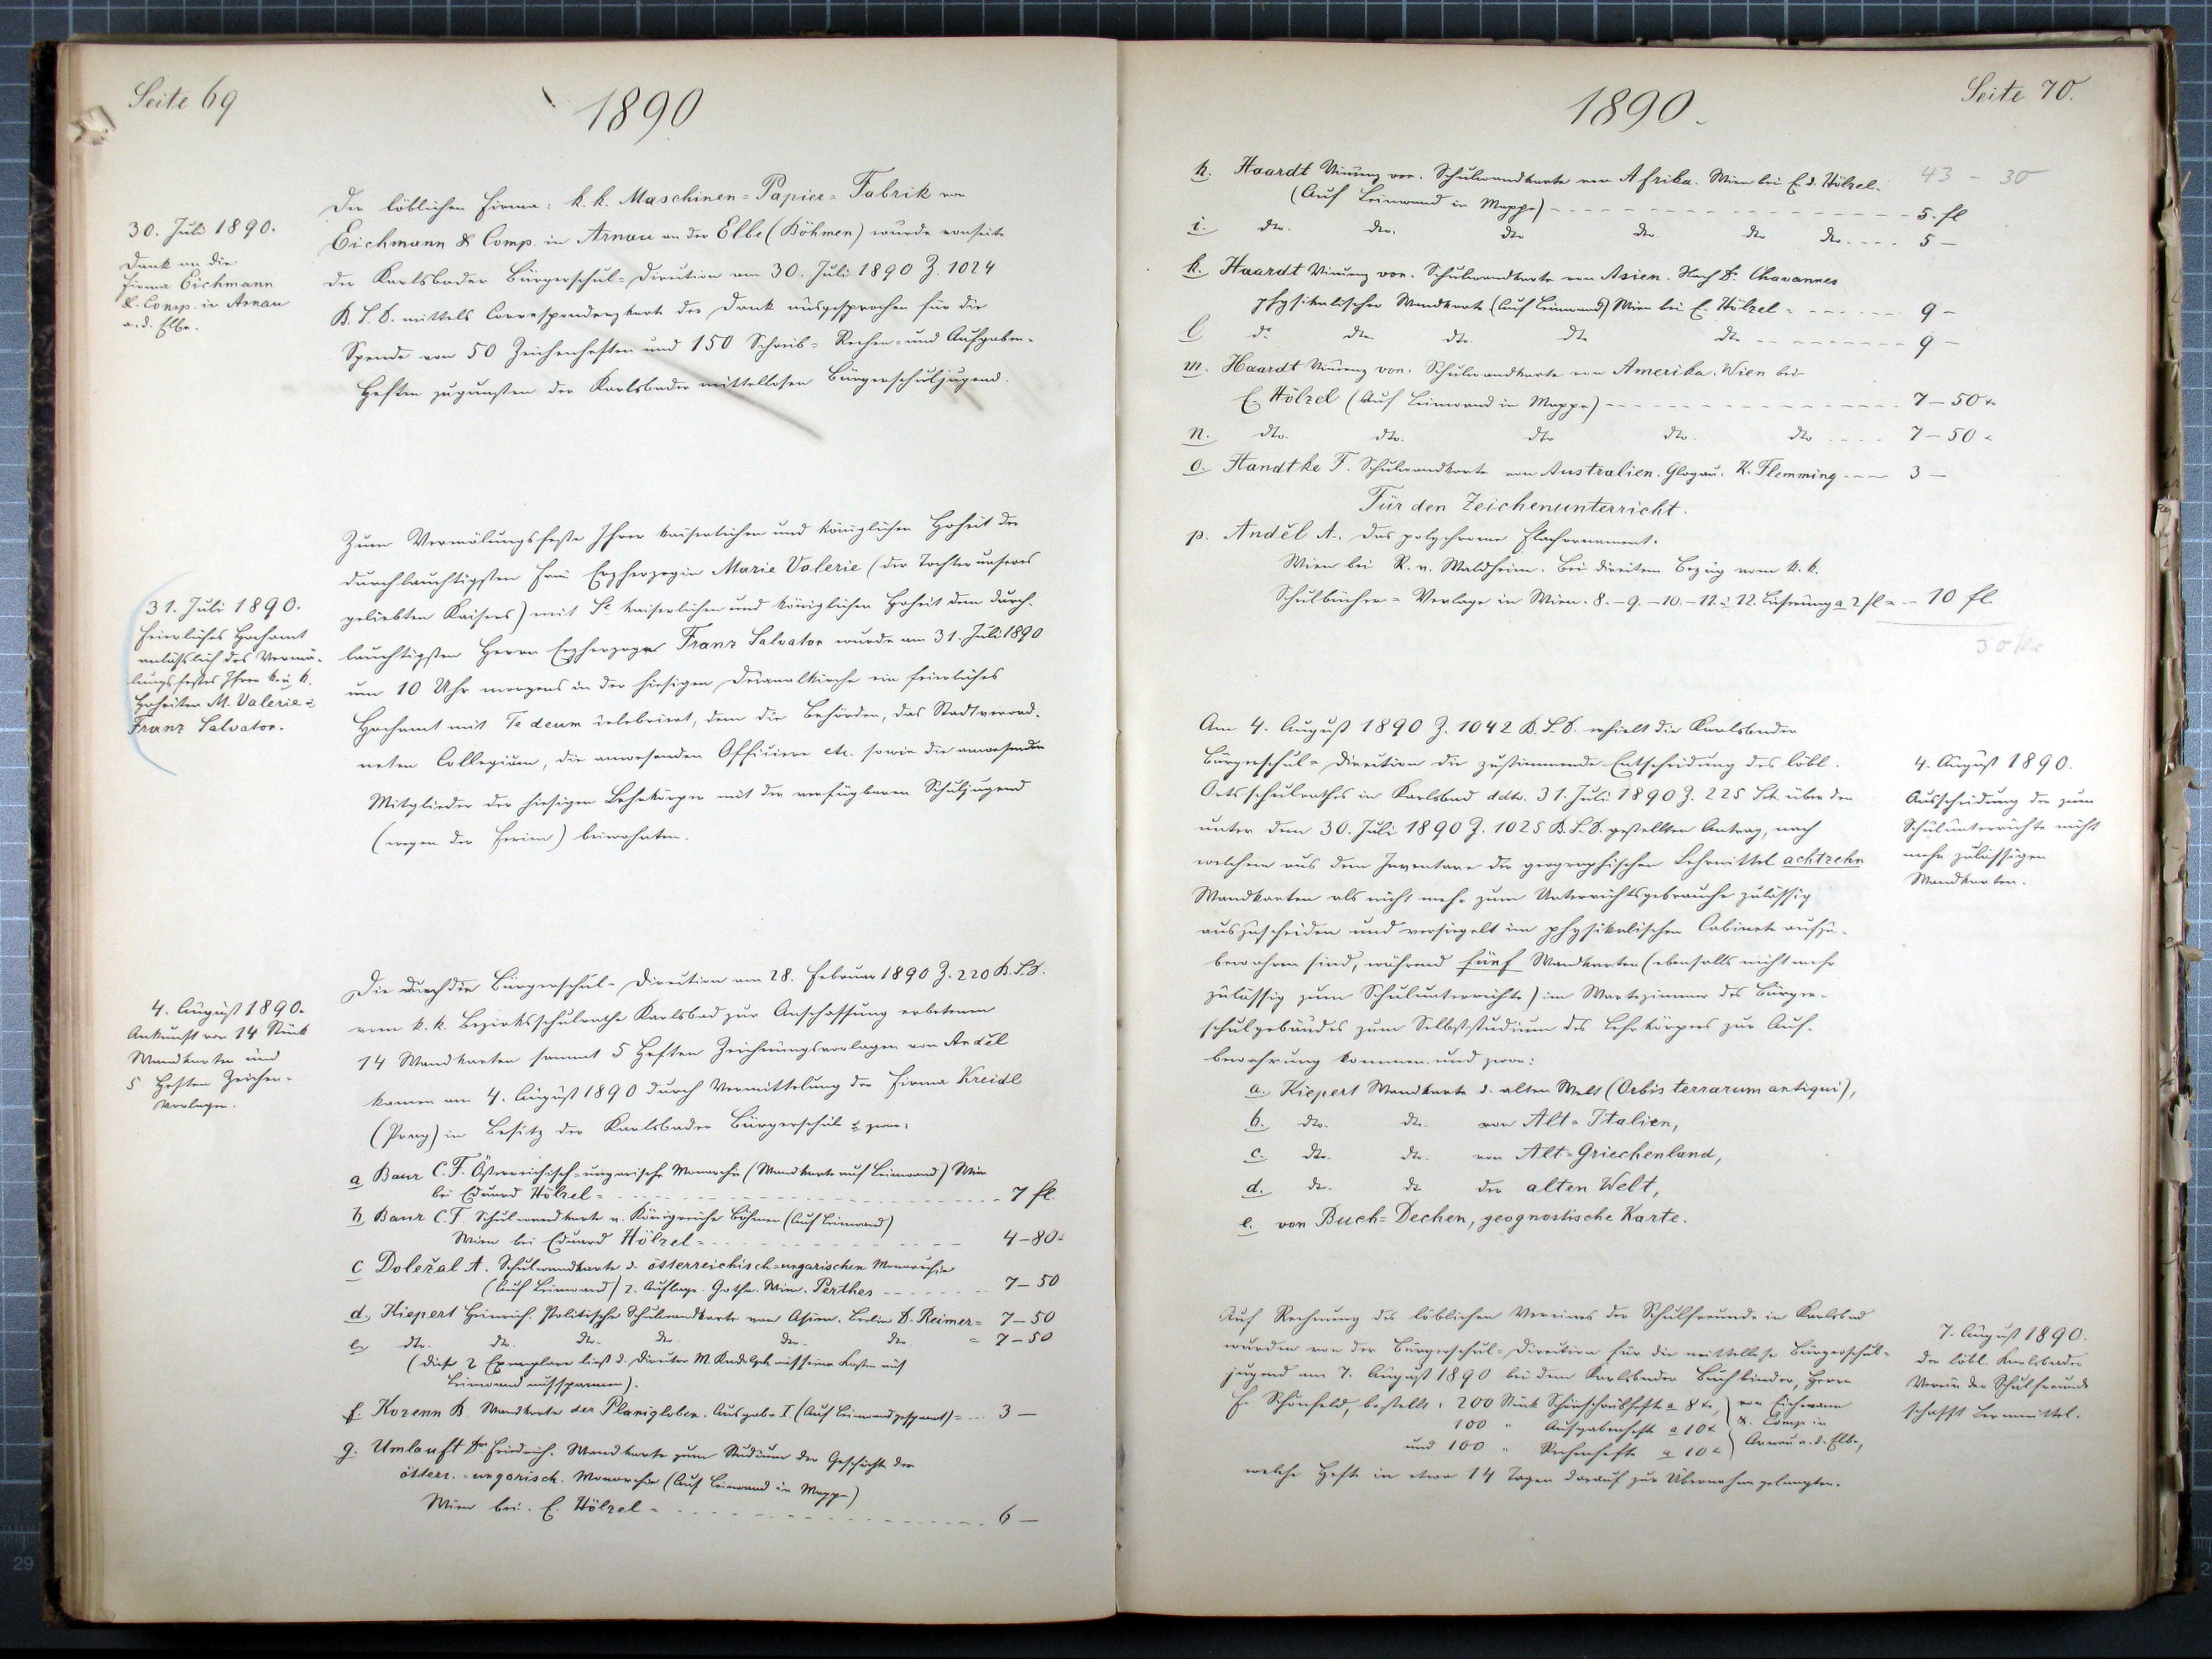 Seite 69
1890
30. Juli 1890.
Dank an die
Firma Eichmann
& Comp. in Arnau
a. d. Elbe.
Der löblichen Firma: k. k. Maschinen=Papier=Fabrik von
Eichmann & Comp. in Arnau an der Elbe (Böhmen) wurde vonseite
der Karlsbader Bürgerschul=Direction am 30. Juli 1890 Z. 1024
B. S. D. mittels Correspondenzkarte der Dank ausgesprochen für die
Spende von 50 Zeichenheften und 150 Schreib= Rechen= und Aufgaben-
Heften zugunsten der Karlsbader mittellosen Bürgerschuljugend.
31. Juli 1890.
Feierliches Hochamt
anläßlich des Vermä-
lungsfestes Ihrer k. u. k.
Hoheiten M. Valerie u
Franz Salvator.
Zum Vermälungsfeste Ihrer kaiserlichen und königlichen Hoheit der
durchlauchtigsten Frau Erzherzogin Marie Valerie (der Tochter unseres
geliebten Kaisers) mit Sr kaiserlichen und königlichen Hoheit dem durch-
lauchtigsten Herrn Erzherzoge Franz Salvator wurde am 31. Juli 1890
um 10 Uhr morgens in der hiesigen Decanalkirche ein feierliches
Hochamt mit Te deum celebriert, dem die Behörden, das Stadtverord-
neten Collegium, die anwesenden Officiere etc. sowie die anwesenden
Mitglieder der hiesigen Lehrkörper mit der verfügbaren Schuljugend
(wegen der Ferien) beiwohnten.
4. August 1890.
Ankunft von 14 Stück
Wandkarten und
5 Heften Zeichen-
vorlagen.
Die durch die Bürgerschul=Direction am 28. Februar 1890 Z. 220 B. S. D.
vom k. k. Bezirksschulrathe Karlsbad zur Anschaffung erbetenen
14 Wandkarten sammt 5 Heften Zeichnungsvorlagen von Anděl
kamen am 4. August 1890 durch Vermittelung der Firma Kreidl
(Prag) in Besitz der Karlsbader Bürgerschule u. zwar:
a Baur C. F. Österreichisch=ungarische Monarchie (Wandkarte auf Leinwand) Wien
bei Eduard Hölzel = 7 fl.
b. Baur C. F. Schulwandkarte v. Königreiche Böhmen (Auf Leinwand)
Wien bei Eduard Hölzel = 4-80
c Doležal A. Schulwandkarte d. österreichisch=ungarischen Monarchie
(Auf Leinwand) 2. Auflage. Gotha. Wien. Perthes 7-50
d. Kiepert Heinrich. Politische Schulwandkarte von Asien. Berlin D. Reimer= 7-50
e. dto. dto. dto. dto. dto. dto. = 7-50
(diese 2 Exemplare ließ d. Director M. Kudelych auf seine Kosten auf
Leinwand aufspannen).
f. Kozenn B. Wandkarte der Planigloben. Ausgabe I (Auf Leinwand gespannt) = 3 —
g. Umlauft Dr Friedrich. Wandkarte zum Studium der Geschichte der
österr.-ungarisch. Monarchie (Auf Leinwand in Mappe)
Wien bei E. Hölzel = 6 —
1890.
Seite 70.
h. Haardt Vinzenz von. Schulwandkarte von Afrika. Wien bei Ed. Hölzel. 43 - 30
(Auf Leinwand in Mappe) 5. fl
i. dto. dto. dto dto dto dto. 5 —
k. Haardt Vinzenz von. Schulwandkarte von Asien. Nach Dr Chavannes
physikalischer Wandkarte (Auf Leinwand) Wien bei E. Hölzel = 9 -
l. dto dto dto. dto dto 9 —
m. Haardt Vinzenz von. Schulwandkarte von Amerika. Wien bei
E. Hölzel (Auf Leinwand in Mappe) 7-50
n. dto. dto. dto dto. dto 7-50
o. Handtke F. Schulwandkarte von Australien. Glogau. K. Flemming 3 —
Für den Zeichenunterricht.
p. Anděl A. Das polychrome Flachornament.
Wien bei R. v. Waldheim. Bei directem Bezug vom k. k.
Schulbücher=Verlage in Wien. 8.-9.-10.-11. u 12. Lieferung a 2 fl = 10 fl.
30 kr
Am 4. August 1890 Z. 1042 B. S. D. erhielt die Karlsbader
Bürgerschul=Direction die zustimmende Entscheidung des löbl.
Ortsschulrathes in Karlsbad ddto. 31. Juli 1890 Z. 225 über den
unter dem 30. Juli 1890 Z. 1025 B. S. D. gestellten Antrag, nach
welchem aus dem Inventare der geographischen Lehrmittel achtzehn
Wandkarten als nicht mehr zum Unterrichtsgebrauche zulässig
auszuscheiden und versiegelt im physikalischen Cabinete aufzu-
bewahren sind, während fünf Wandkarten (ebenfalls nicht mehr
zulässig zum Schulunterrichte) im Wartezimmer des Bürger-
schulgebäudes zum Selbststudium des Lehrkörpers zur Auf-
bewahrung kommen und zwar:
a. Kiepert Wandkarte d. alten Welt (Orbis terrarum antiqui),
b. dto. dto. von Alt=Italien,
c. dto. dto. von Alt=Griechenland,
d. dto. dto der alten Welt,
e. von Buch=Dechen, geognostische Karte.
4. August 1890.
Ausscheidung der zum
Schulunterrichte nicht
mehr zulässigen
Wandkarten.
Auf Rechnung des löblichen Vereines der Schulfreunde in Karlsbad
wurden von der Bürgerschul=Direction für die mittellose Bürgerschul=
jugend am 7. August 1890 bei dem Karlsbader Buchbinder, Herrn
F. Schönfeld, bestellt: 200 Stück Schönschreibhefte a 8 kr, von Eichmann
100 " Aufgabenhefte a 10 kr & Comp. in
und 100 " Rechenhefte a 10 kr Arnau a. d. Elbe,
welche Hefte in etwa 14 Tagen darauf zur Übernahme gelangten.
7. August 1890.
Der löbl. Karlsbader
Verein der Schulfreunde
schafft Lernmittel.